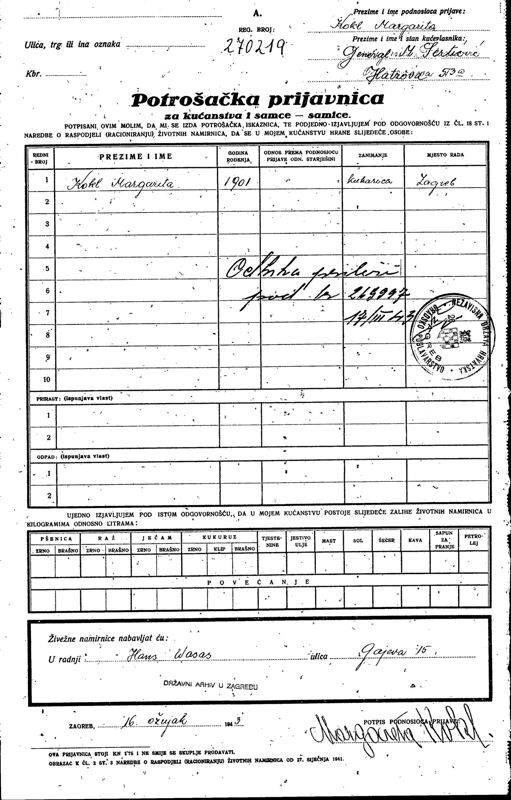 A.
REG. BROJ:
270219
Ulica, trg ili ina oznaka
Kbr.
Prezime i ime podnosioca prijave:
Kokl Margarita
Prezime i ime i stan kućevlasnika:
General M.
Potrošačka prijavnica
za kućanstva i samce — samice.
POTPISANI OVIM MOLIM, DA MI SE IZDA POTROŠAČKA ISKAZNICA, TE PODJEDNO IZJAVLJUJEM POD ODGOVORNOŠĆU IZ ČL. 18 ST. 1
NAREDBE O RASPODJELI (RACIONIRANJU) ŽIVOTNIH NAMIRNICA, DA SE U MOJEM KUĆANSTVU HRANE SLIJEDEĆE OSOBE:
REDNI BROJ PREZIME I IME GODINA ROĐENJA ODNOS PREMA PODNOSIOCU PRIJAVE ODN. STARJEŠINI ZANIMANJE MJESTO RADA
1 Kokl Margarita 1901 kuharica Zagreb
2
3
4
5
6 pod br 263997
7 17/III 43
8
9
10
NEZAVISNA DRŽAVA HRVATSKA
ZAGREB
PRIRAST: (Ispunjava vlast)
1
2
ODPAD: (Ispunjava vlast)
1
2
UJEDNO IZJAVLJUJEM POD ISTOM ODGOVORNOŠĆU, DA U MOJEM KUĆANSTVU POSTOJE SLIJEDEĆE ZALIHE ŽIVOTNIH NAMIRNICA U
KILOGRAMIMA ODNOSNO LITRAMA:
PŠENICA RAŽ JEČAM KUKURUZ TJESTENINE JESTIVO ULJE MAST SOL ŠEĆER KAVA SAPUN ZA PRANJE PETROLEJ
ZRNO BRAŠNO ZRNO BRAŠNO ZRNO BRAŠNO ZRNO KLIP BRAŠNO
POVEĆANJE
Živežne namirnice nabavljat ću:
U radnji Hans Wasas ulica Gajeva 15.
DRŽAVNI ARHIV U ZAGREBU
ZAGREB, 16. ožujak 1943
POTPIS PODNOSIOCA PRIJAVE:
Margareta Kokl
OVA PRIJAVNICA STOJI KN 1'75 I NE SMIJE SE SKUPLJE PRODAVATI.
OBRAZAC K ČL. 2 ST. 3 NAREDBE O RASPODJELI (RACIONIRANJU) ŽIVOTNIH NAMIRNICA OD 27. SIJEČNJA 1941.